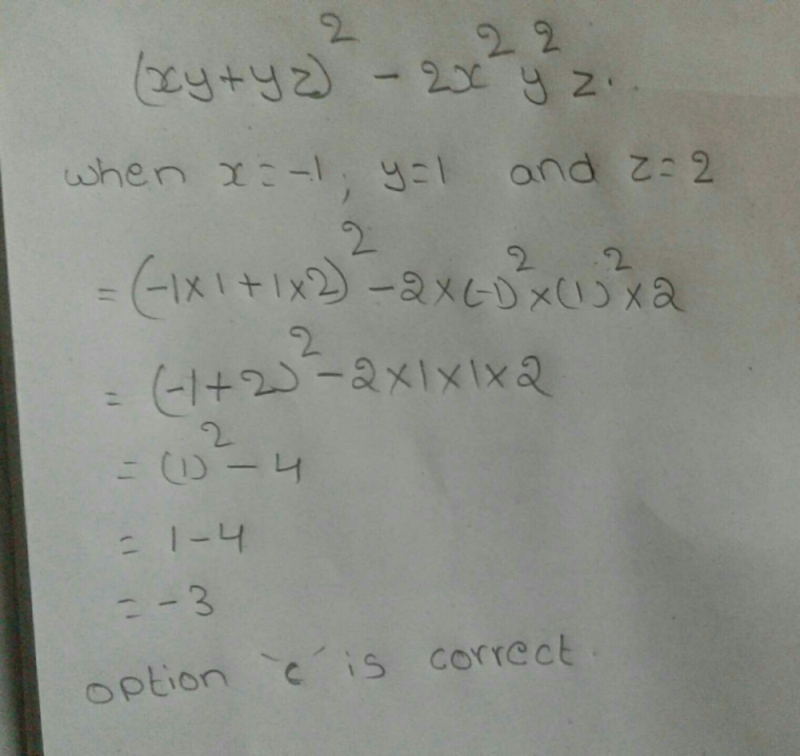 (xy+yz)² - 2x²y²z.
when x=-1, y=1 and z=2
= (-1×1+1×2)² - 2×(-1)²×(1)²×2
= (-1+2)² - 2×1×1×2
= (1)² - 4
= 1-4
= -3
option `c´ is correct.